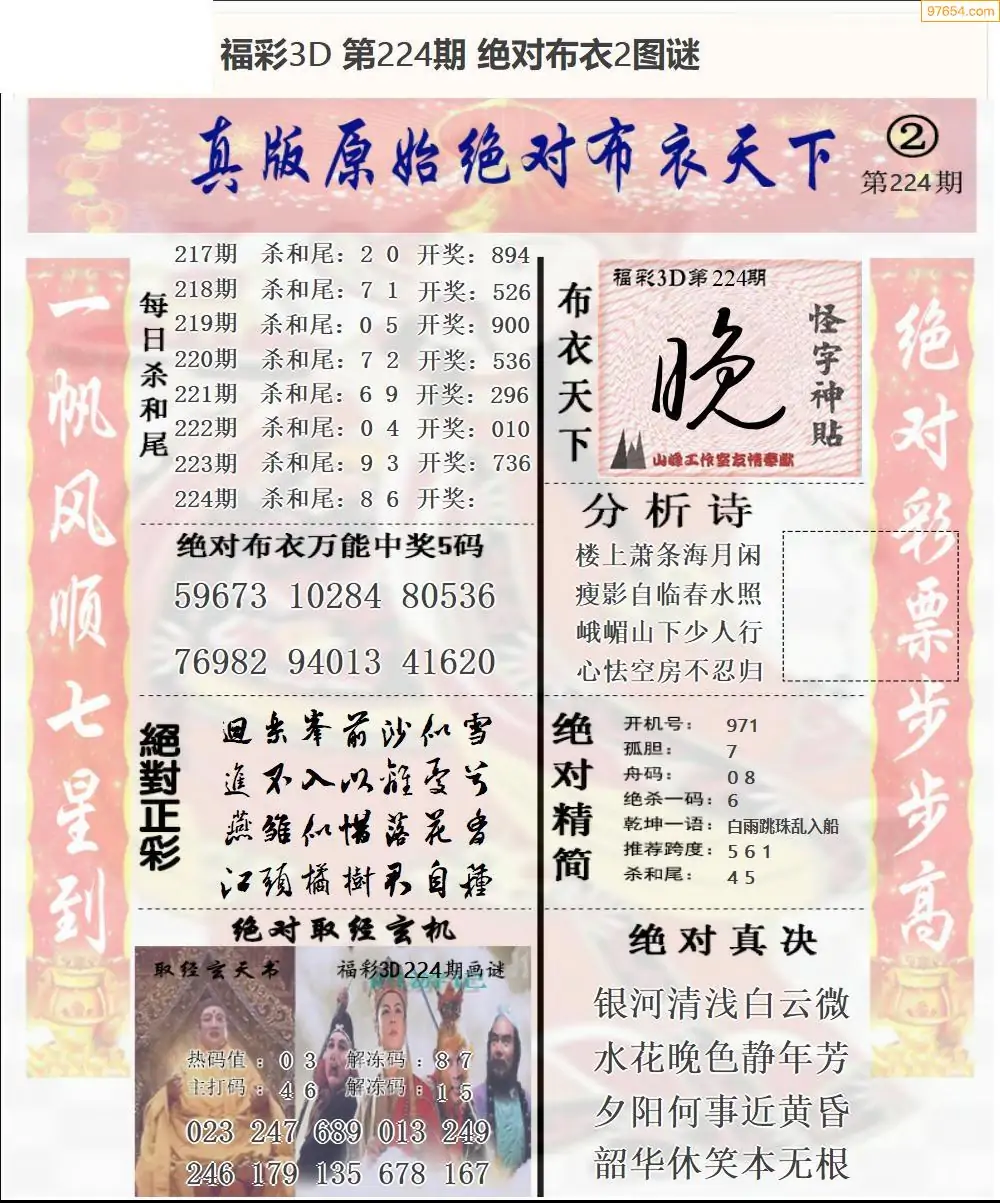 97654.com
福彩3D 第224期 绝对布衣2图谜
真版原始绝对布衣天下
②
第224期
一帆风顺七星到
每日杀和尾
217期 杀和尾：2 0 开奖：894
218期 杀和尾：7 1 开奖：526
219期 杀和尾：0 5 开奖：900
220期 杀和尾：7 2 开奖：536
221期 杀和尾：6 9 开奖：296
222期 杀和尾：0 4 开奖：010
223期 杀和尾：9 3 开奖：736
224期 杀和尾：8 6 开奖：
绝对布衣万能中奖5码
59673 10284 80536
76982 94013 41620
絕對正彩
迴乐峯前沙似雪
進不入以離憂兮
燕雏似惜落花香
江頭橘樹君自種
绝对取经玄机
取经玄天书
福彩3D224期画谜
热码值：0 3 解冻码：8 7
主打码：4 6 解冻码：1 5
023 247 689 013 249
246 179 135 678 167
布衣天下
福彩3D第224期
晚
怪字神貼
山峰工作室友情奉献
分析诗
楼上萧条海月闲
瘦影自临春水照
峨嵋山下少人行
心怯空房不忍归
绝对精简
开机号： 971
孤胆： 7
舟码： 0 8
绝杀一码： 6
乾坤一语： 白雨跳珠乱入船
推荐跨度： 5 6 1
杀和尾： 4 5
绝对真决
银河清浅白云微
水花晚色静年芳
夕阳何事近黄昏
韶华休笑本无根
绝对彩票步步高